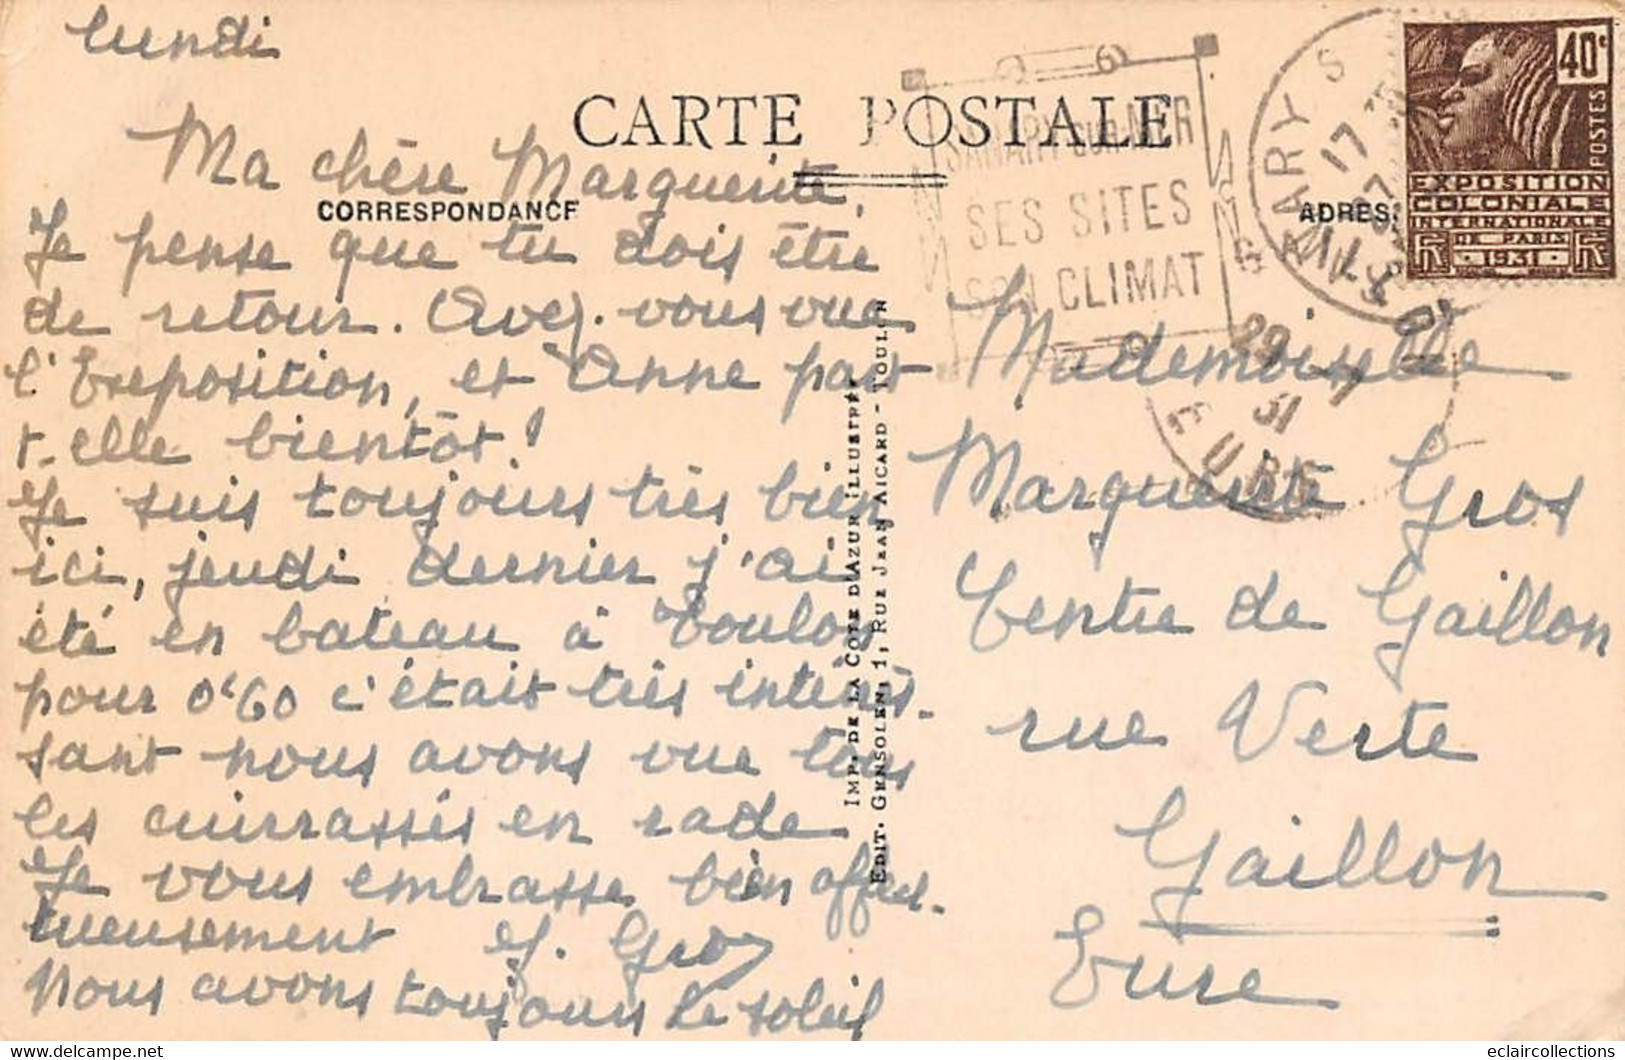 lundi
CARTE POSTALE
CORRESPONDANCE
Ma chère Marguerite,
Je pense que tu dois être
de retour. Avez-vous vue
l'Exposition, et Anne part
t-elle bientôt!
Je suis toujours très bien
ici, jeudi dernier j'ai
été en bateau à Toulon
pour 0'60 c'était très intéres-
sant nous avons vue tous
les cuirrassés en rade
Je vous embrasse bien affec-
tueusement J. Gros
Nous avons toujours le soleil
IMP. DE LA COTE D'AZUR ILLUSTRÉE
EDIT. GENSOLEN, 1, RUE JEAN AICARD - TOULON
SANARY-SUR-MER
SES SITES
SON CLIMAT
40c
POSTES
EXPOSITION
COLONIALE
INTERNATIONALE
DE PARIS
1931
ADRES
29 -7
31
EURE
Mademoiselle
Marguerite Gros
Centre de Gaillon
rue Verte
Gaillon
Eure
eclaircollections